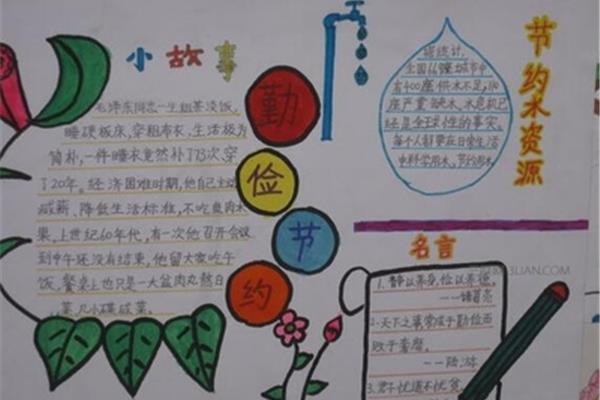 小故事
毛泽东同志一生粗茶淡饭,
睡硬板床,穿粗布衣,生活极为
简朴,一件睡衣竟然补了73次,穿
了20年。经济困难时期,他自己主动
减薪、降低生活标准,不吃鱼肉水
果。上世纪60年代,有一次他召开会议
到中午还没有结束,他留大家吃午
饭,餐桌上也只是一大盆肉丸熬白
菜,几小碟咸菜。
勤
俭
节
约
据统计,
全国66
有400座供水不足,110
座严重缺水,水危机已
经是全球性的事实。
每个人都要在日常生活
中科学用水,节约用水
节约水资源
名言
1.静以养身,俭以养德,
——诸葛亮
2.天下之事常成于勤俭而
败于奢靡。
——陆游
3.君子忧道不忧贫。
3LIAN.COM